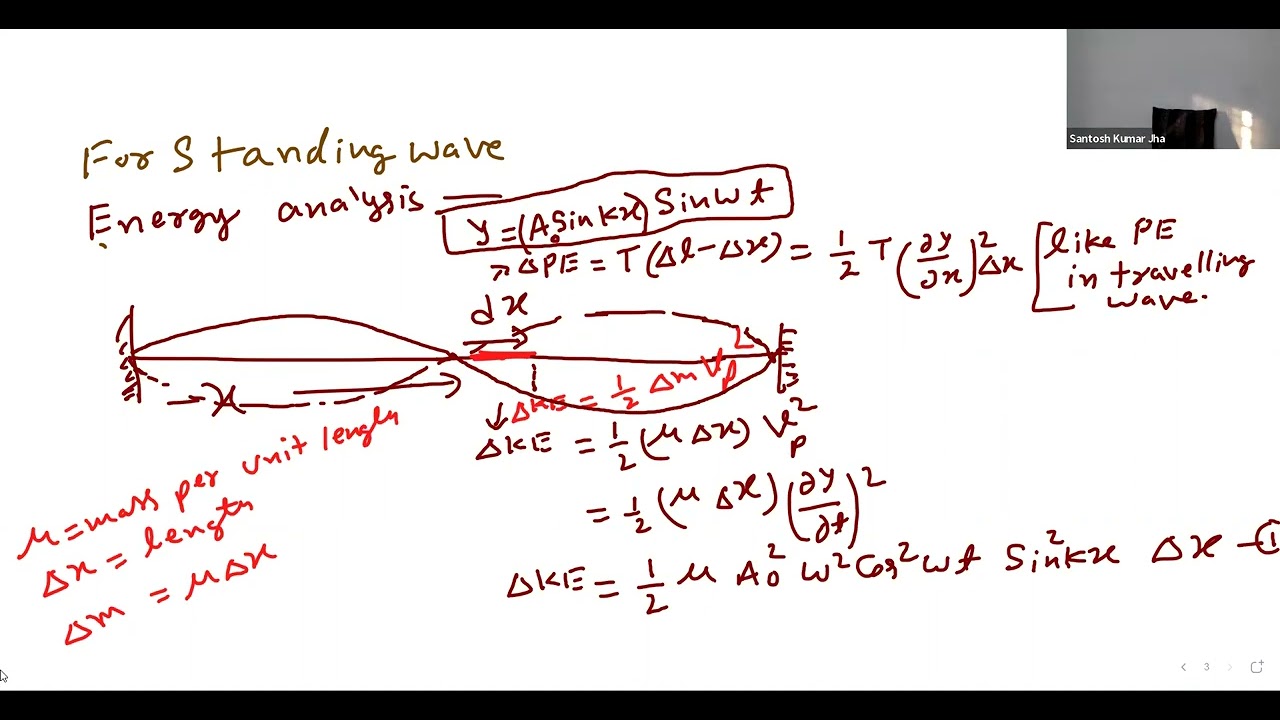 Santosh Kumar Jha
For Standing wave
Energy analysis —
y = (A₀ Sin kx) Sin ωt
→ ΔPE = T(Δl - Δx) = 1/2 T (∂y/∂x)² Δx [like PE in travelling wave.
dx
x
ΔKE = 1/2 Δm Vp²
ΔKE = 1/2 (μ Δx) Vp²
= 1/2 (μ Δx) (∂y/∂t)²
ΔKE = 1/2 μ A₀² ω² Cos² ωt Sin² kx Δx - ①
μ = mass per unit length
Δx = length
Δm = μ Δx
3